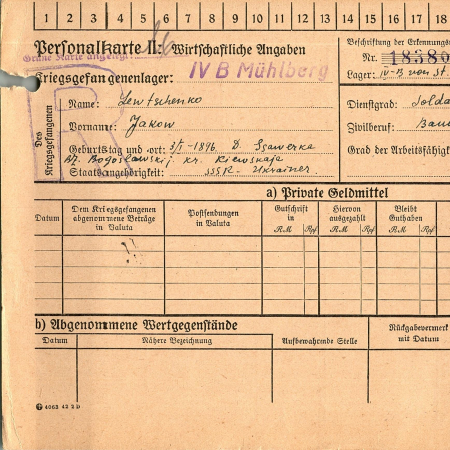 1 2 3 4 5 6 7 8 9 10 11 12 13 14 15 16 17 18
Personalkarte II: Wirtschaftliche Angaben
Beschriftung der Erkennungs
Grüne Karte angelegt
Nr. 18380
Kriegsgefangenenlager: IV B Mühlberg
Lager: IV-B von St.
Des Kriegsgefangenen
Name: Lewtschenko
Dienstgrad: Solda
Vorname: Jakow
Zivilberuf: Bau
Geburtstag und -ort: 3/I-1896 D. Sawerka
Grad der Arbeitsfähigk
Bogoslawskij Kr. Kiewskaja
Staatsangehörigkeit: SSSR - Ukrainer
a) Private Geldmittel
Datum
Dem Kriegsgefangenen abgenommene Beträge in Valuta
Postsendungen in Valuta
Gutschrift in
RM Rpf
Hiervon ausgezahlt
RM Rpf
Bleibt Guthaben
RM Rpf
b) Abgenommene Wertgegenstände
Rückgabevermerk mit Datum
Datum
Nähere Bezeichnung
Aufbewahrende Stelle
4063 42 2 D